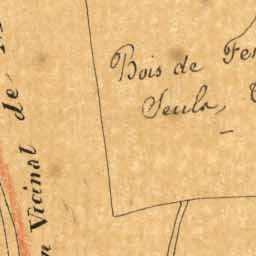 Bois de Fe
Seuls,
Vicinal de